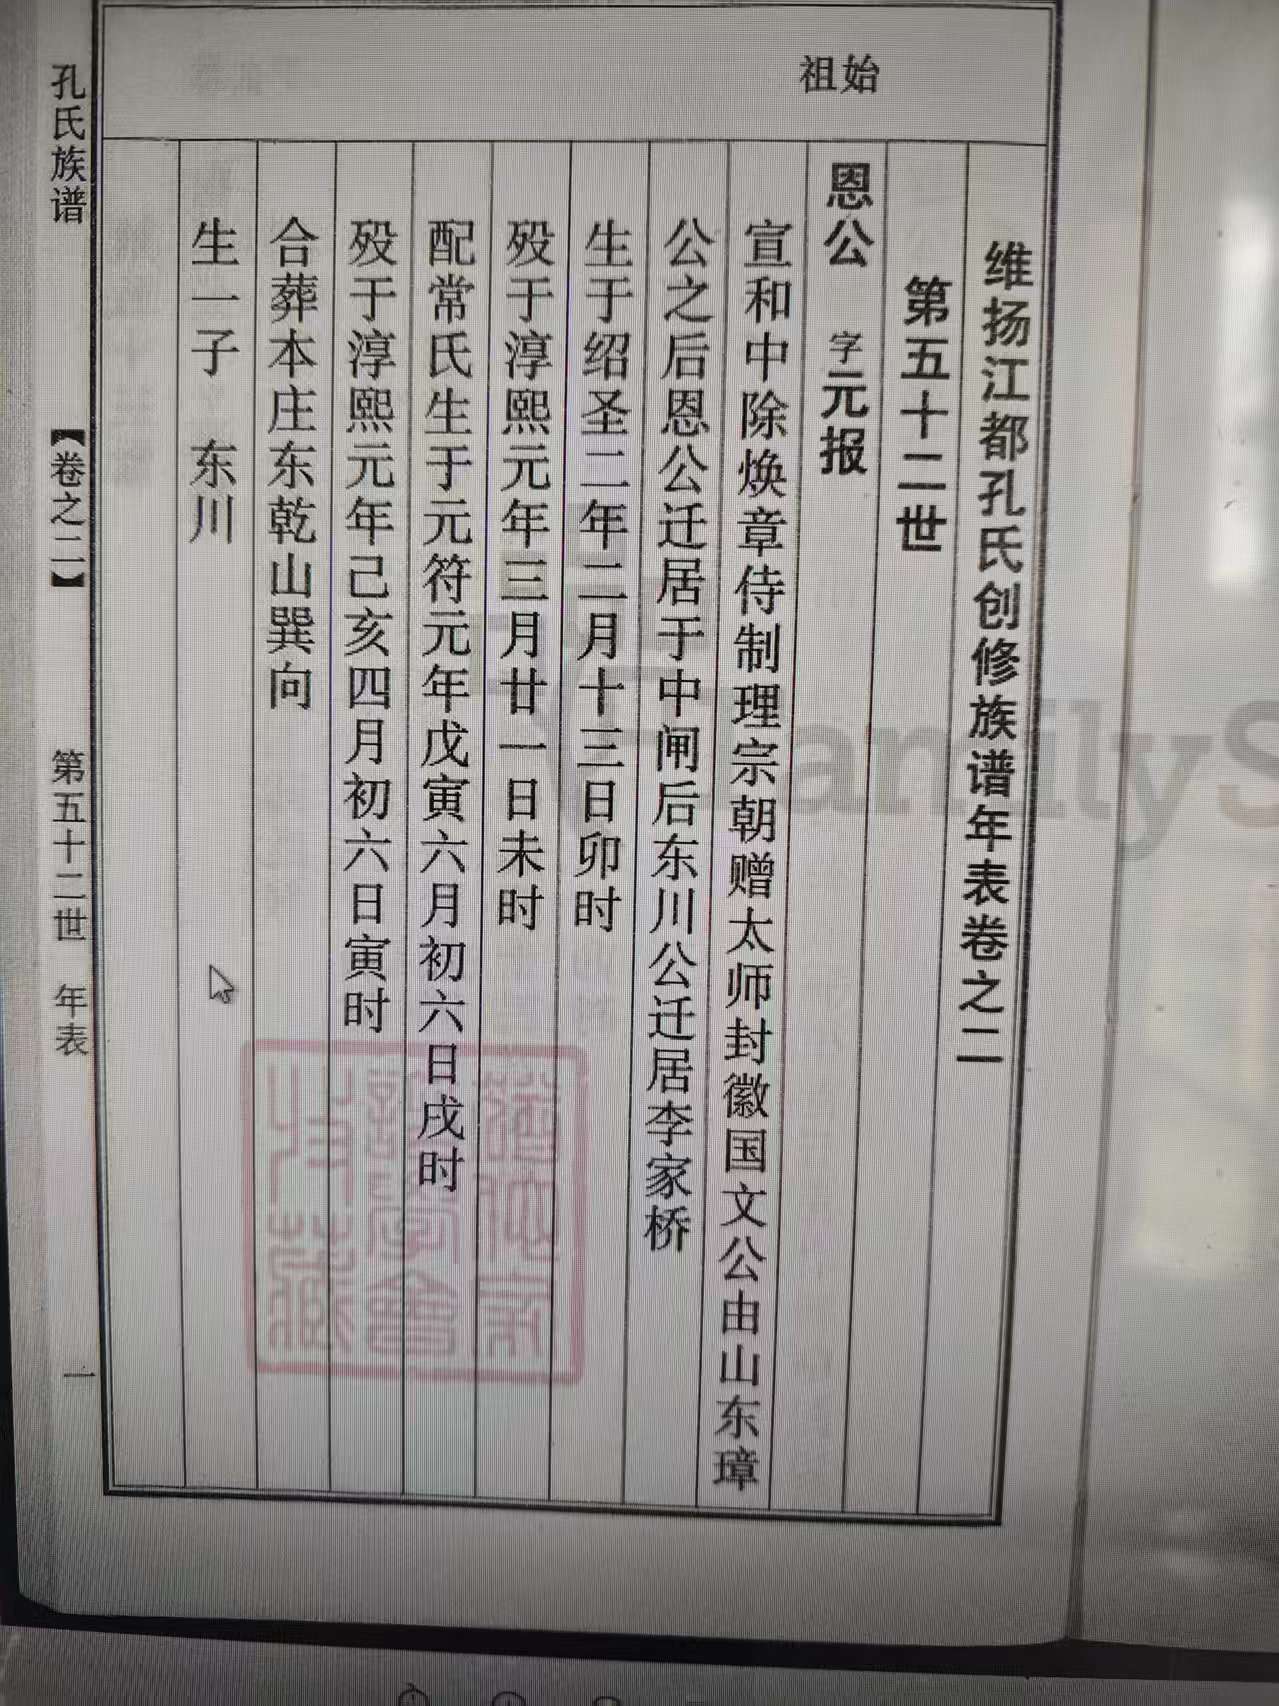 始祖
维扬江都孔氏创修族谱年表卷之二
第五十二世
恩公 字元报
宣和中除焕章侍制理宗朝赠太师封徽国文公由山东璋
公之后恩公迁居于中闸后东川公迁居李家桥
生于绍圣二年二月十三日卯时
殁于淳熙元年三月廿一日未时
配常氏生于元符元年戊寅六月初六日戌时
殁于淳熙元年己亥四月初六日寅时
合葬本庄东乾山巽向
生一子 东川
孔氏族谱 【卷之二】 第五十二世 年表 一
FamilyS